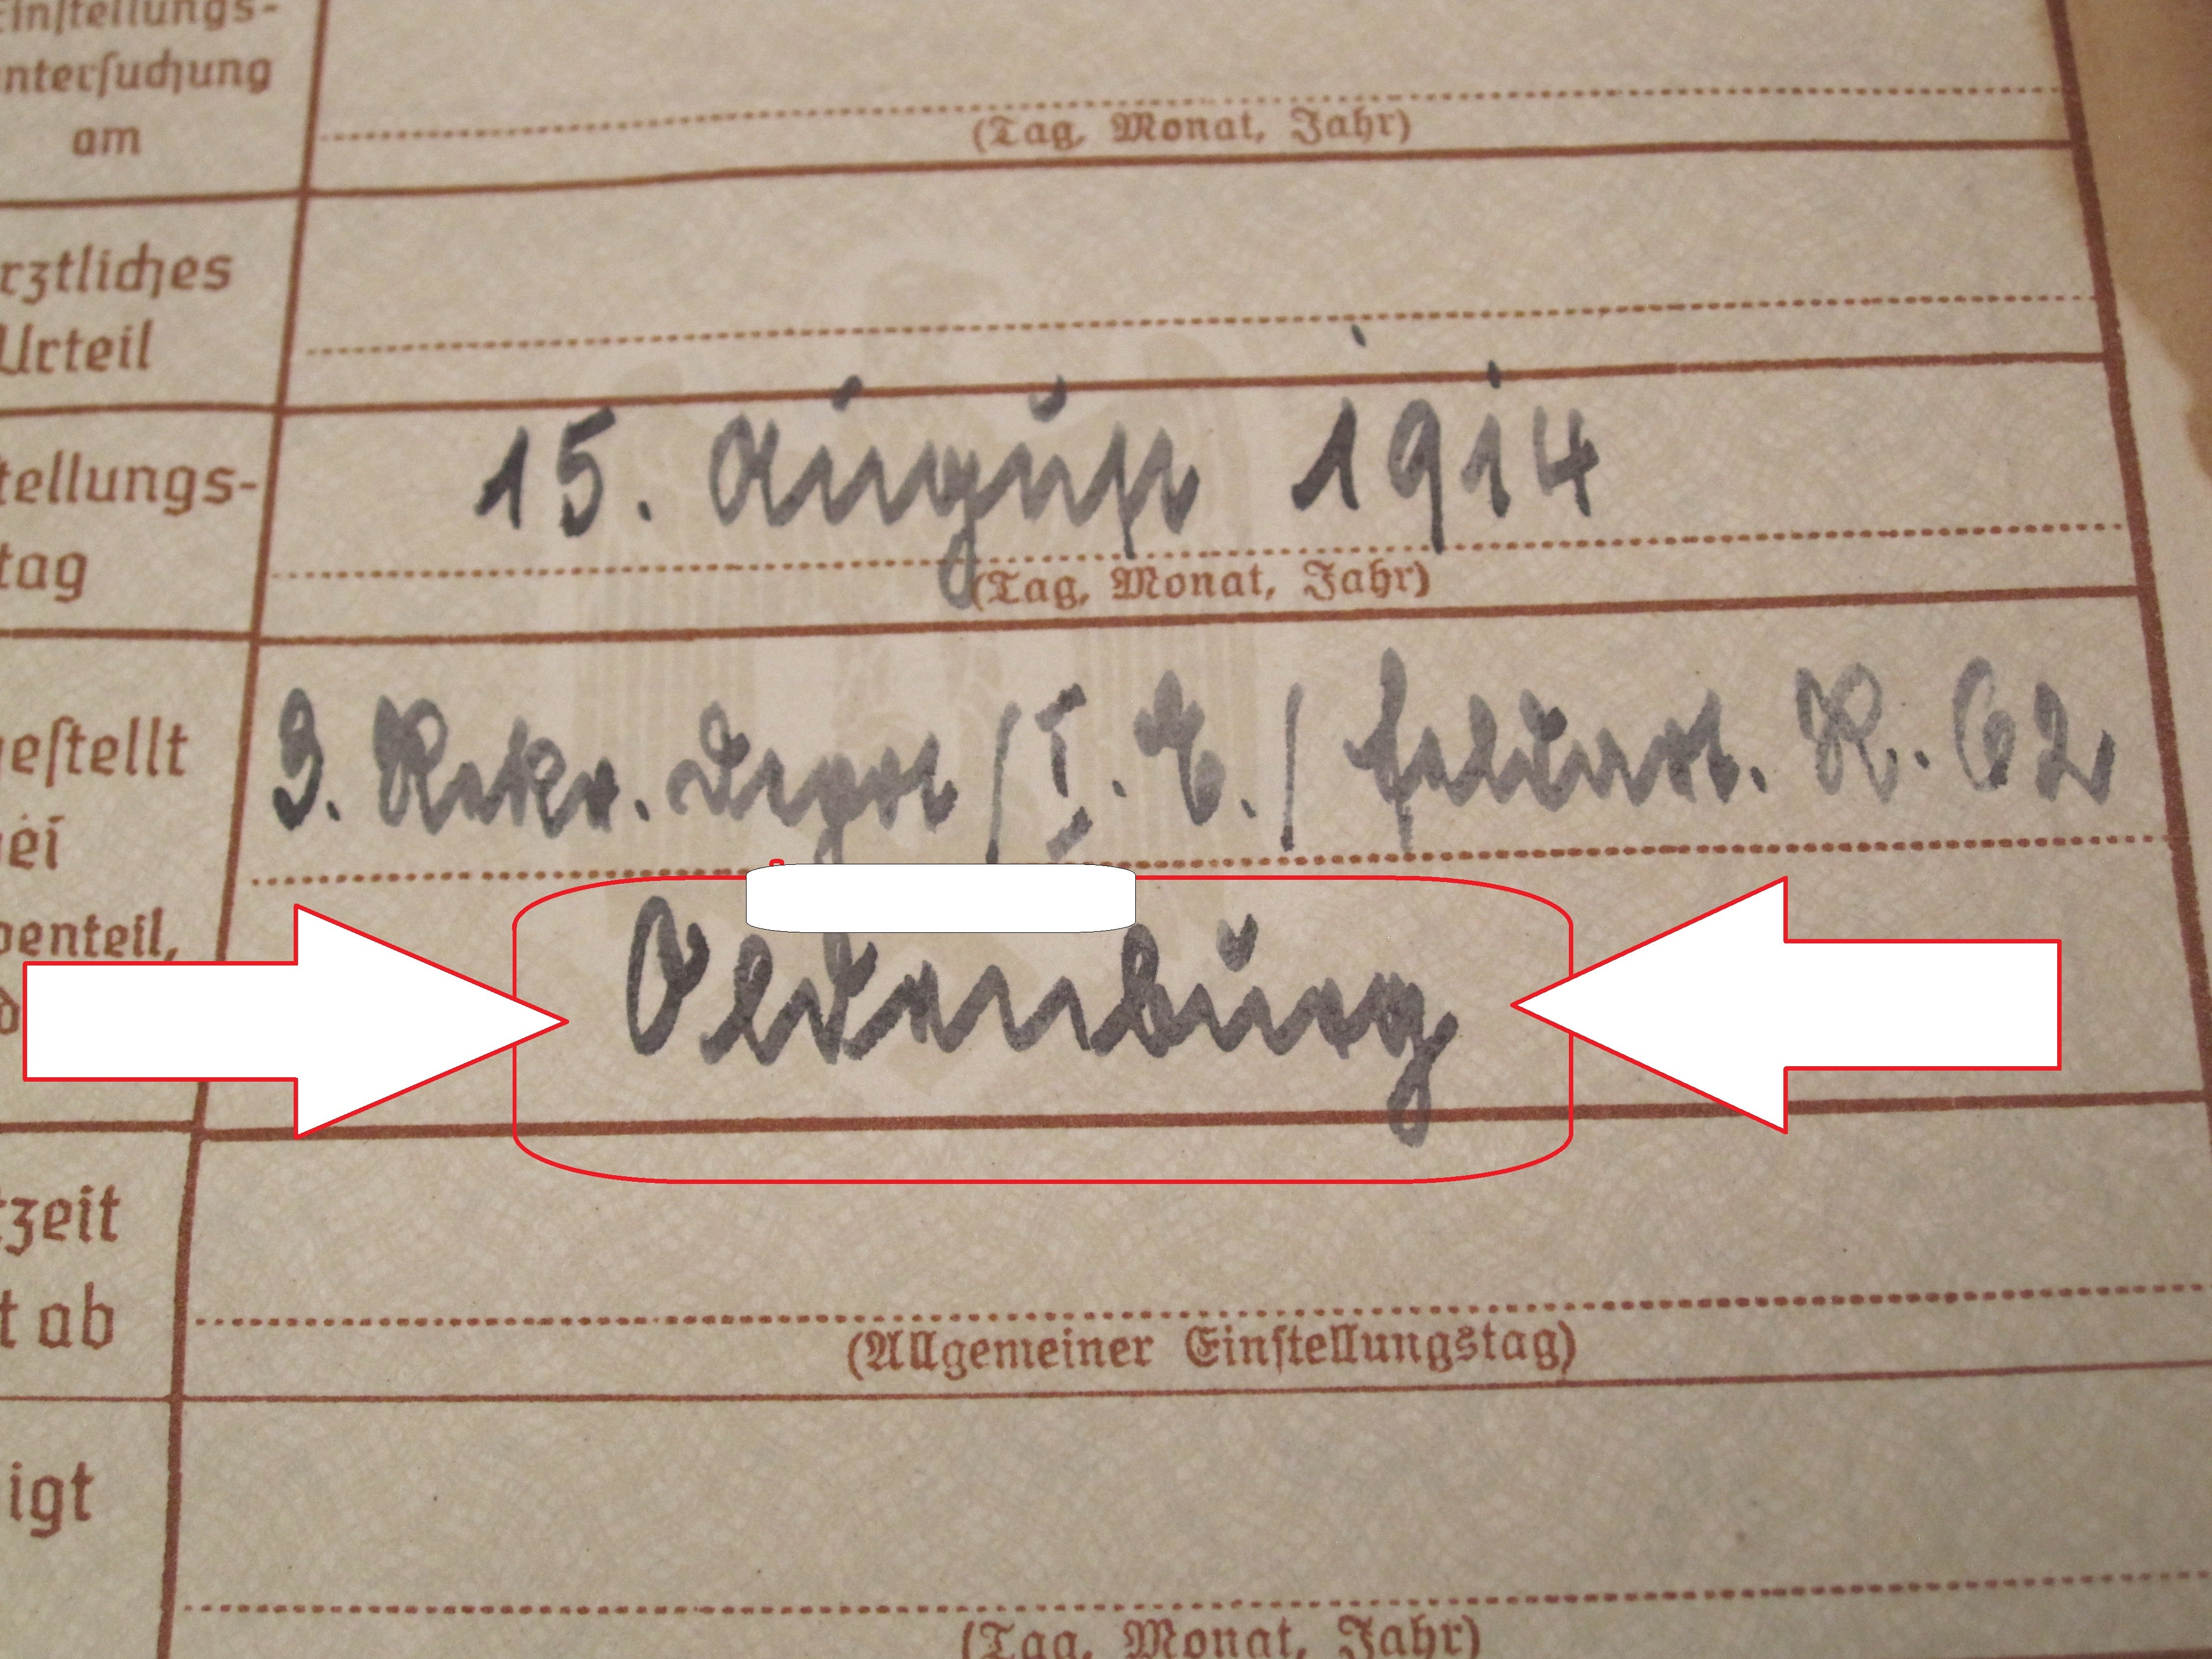 Einstellungs-
untersuchung
am
(Tag, Monat, Jahr)
rztliches
Urteil
tellungs-
tag
15. August 1914
(Tag, Monat, Jahr)
gestellt
bei
3. Rekr. Depot / I. E. / Feldart. R. 62
penteil,
Oldenburg
tzeit
t ab
(Allgemeiner Einstellungstag)
igt
(Tag, Monat, Jahr)